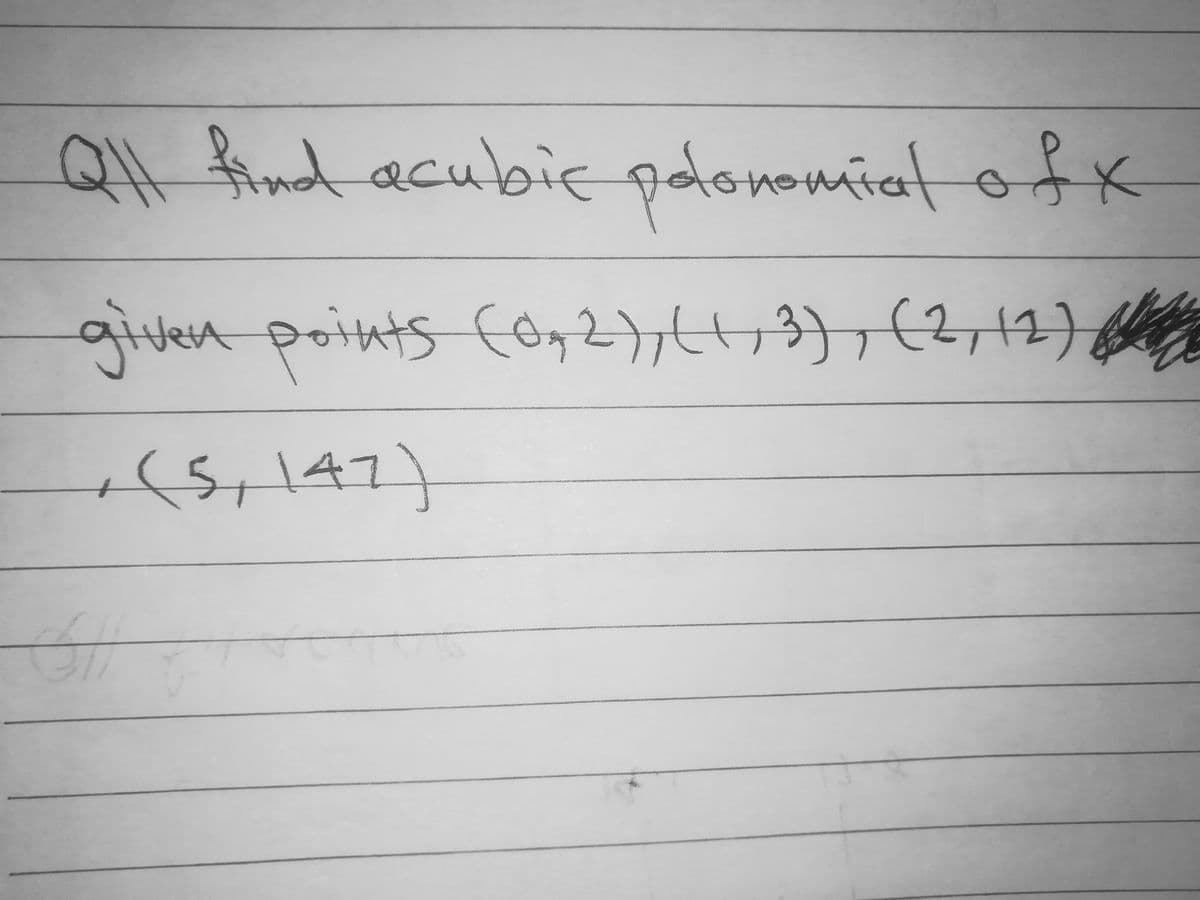 Q\\ find acubic polonomial of x
given points (0,2),(1,3),(2,12)
,(5,147)